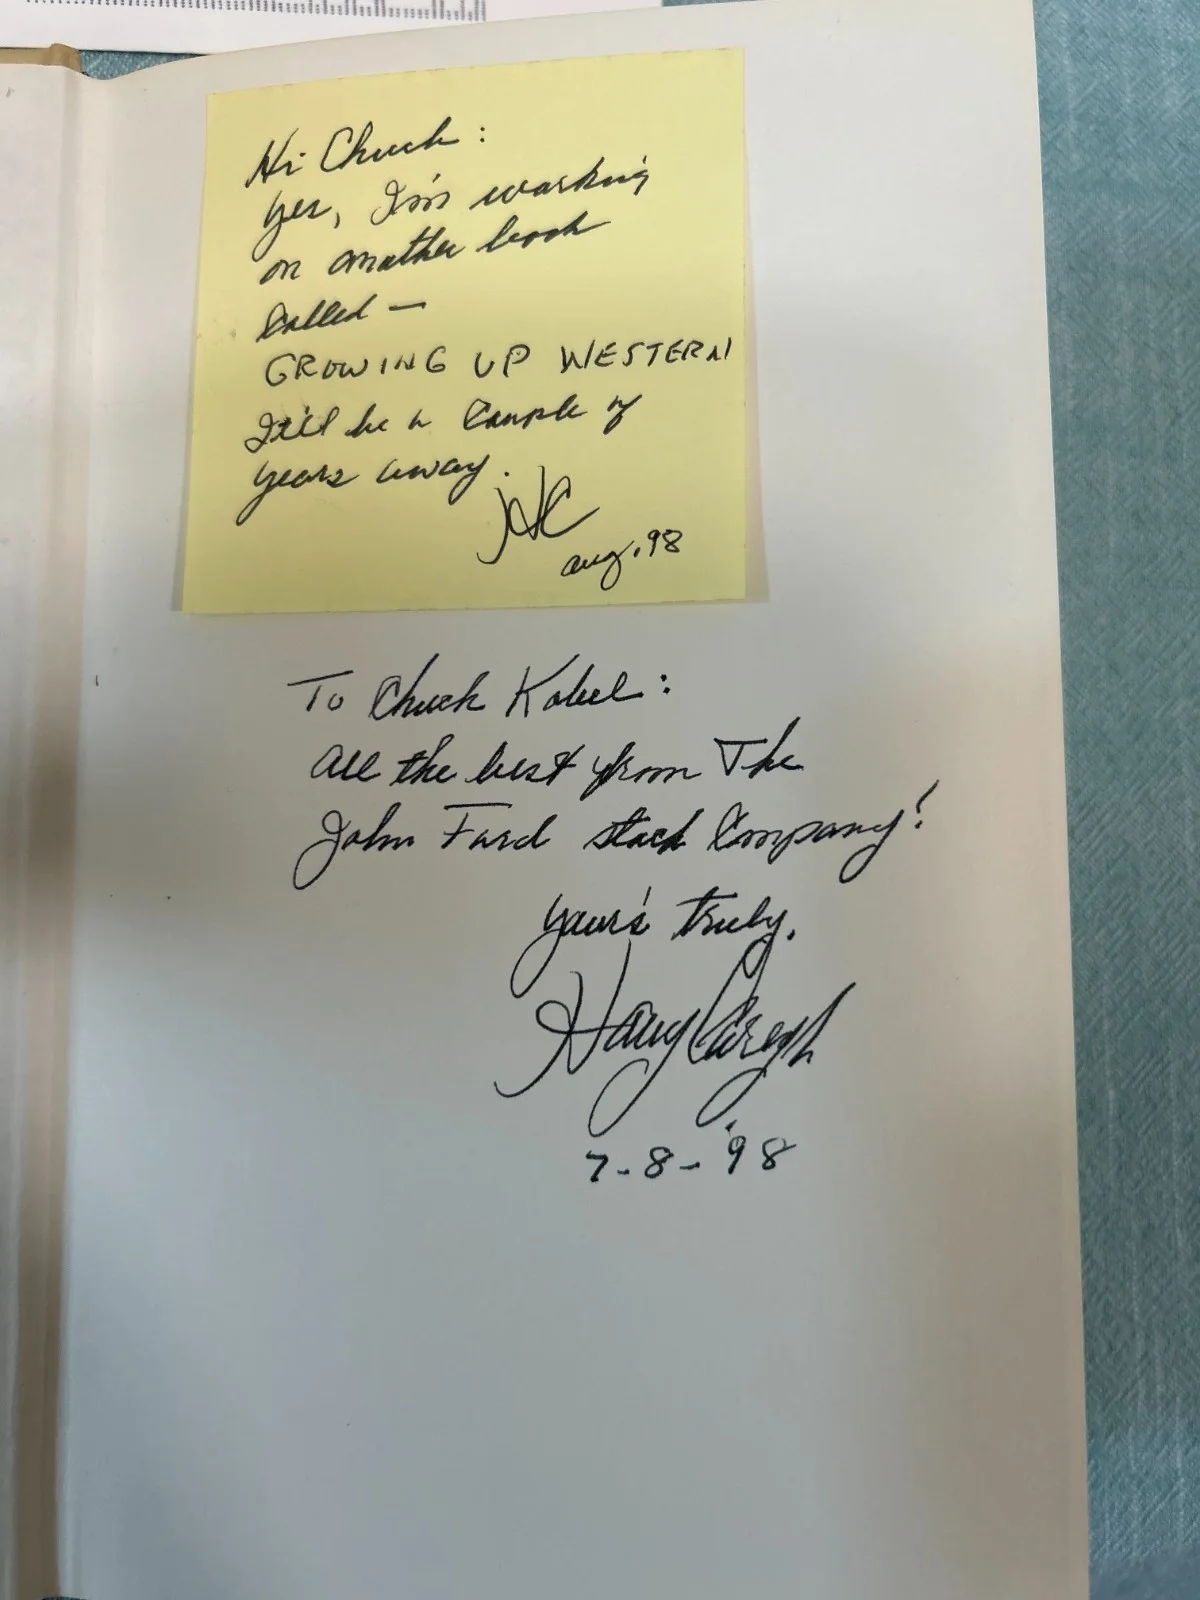 Hi Chuck:
Yes, I'm working
on another book
Called —
GROWING UP WESTERN
It'll be a Couple of
years away.
HC
aug. 98
To Chuck Kobel:
All the best from The
John Ford stock Company!
Your's truly,
Harry Carey Jr
7-8-'98